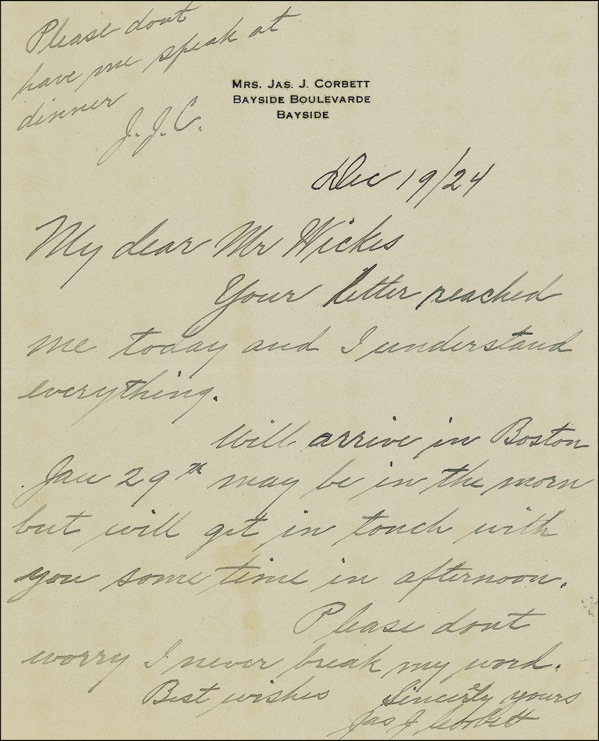 Please dont
have me speak at
dinner
J.J.C.
MRS. JAS. J. CORBETT
BAYSIDE BOULEVARDE
BAYSIDE
Dec 19/24
My dear Mr Wickes
Your letter reached
me today and I understand
everything.
Will arrive in Boston
Jan 29th may be in the morn
but will get in touch with
you some time in afternoon.
Please dont
worry I never break my word.
Best wishes Sincerely yours
Jas J Corbett